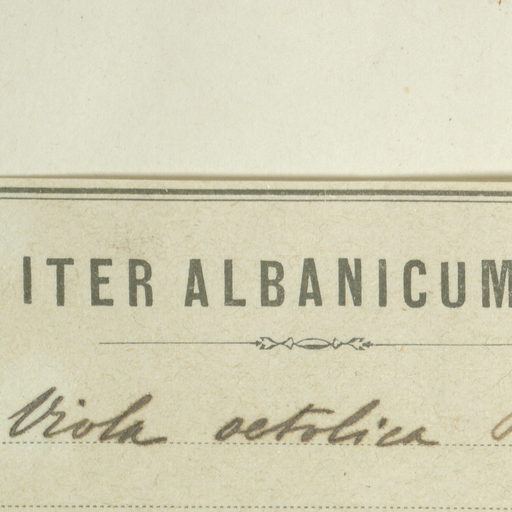 ITER ALBANICUM
Viola aetolica